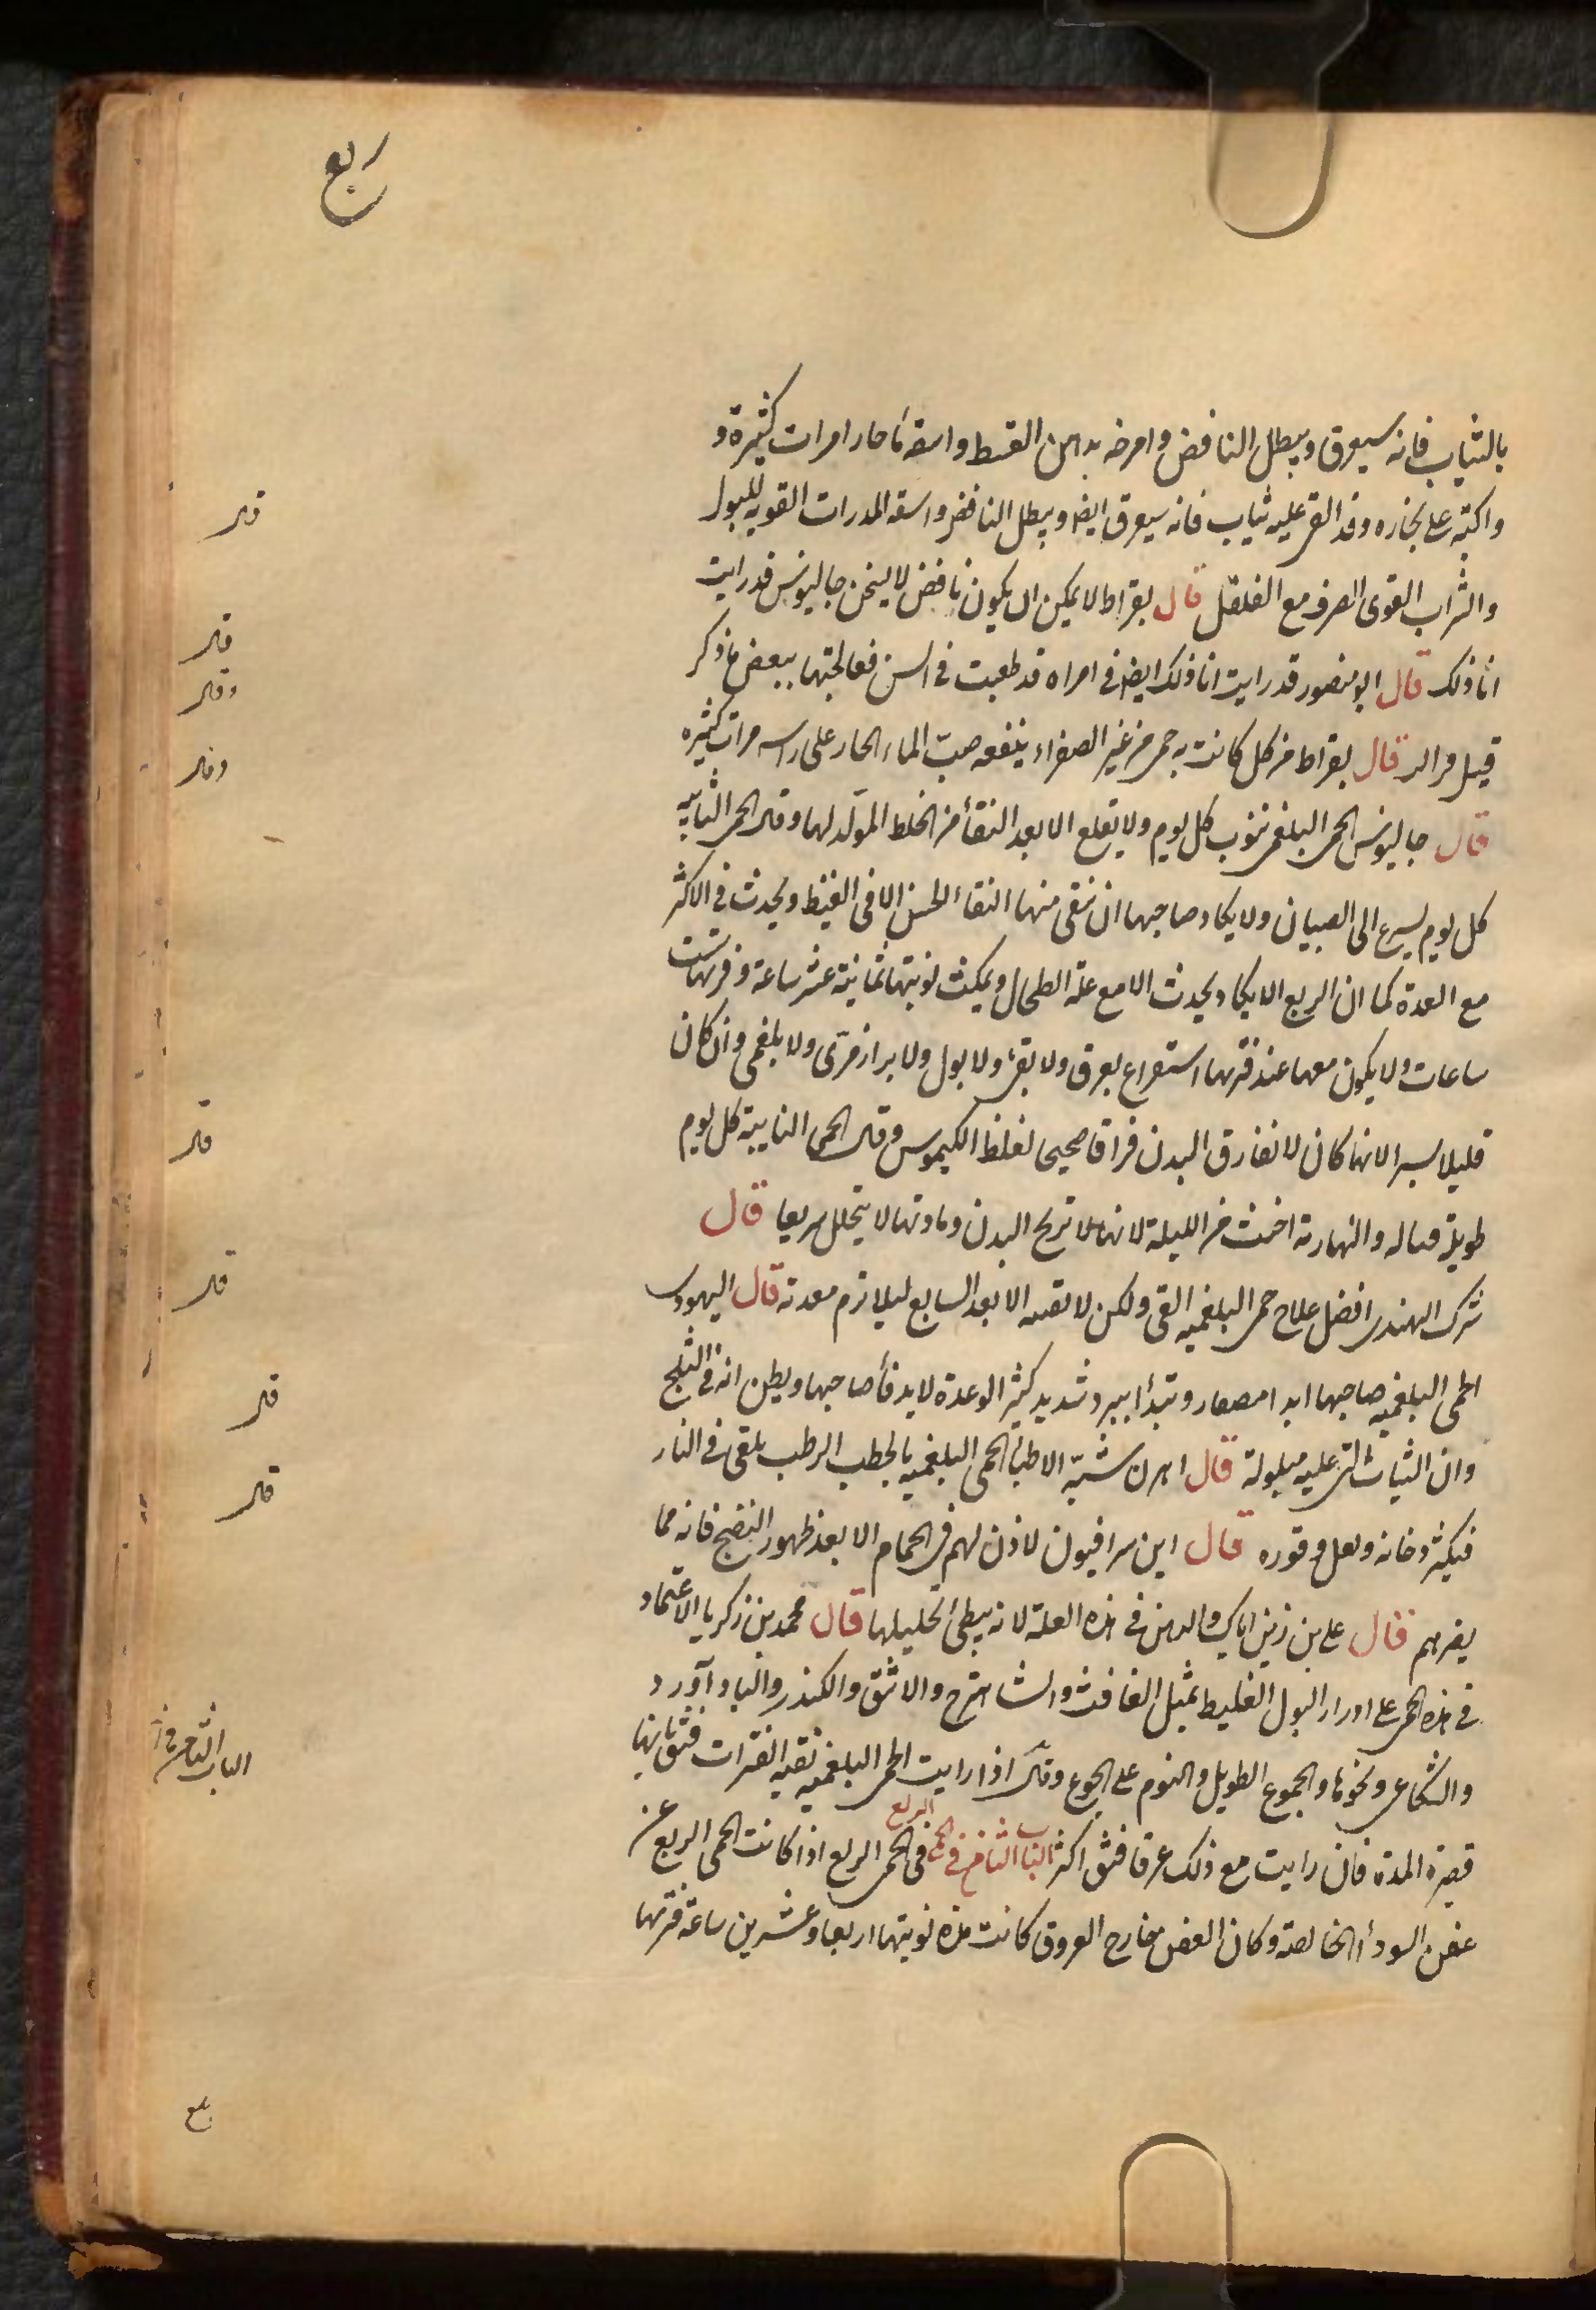 ربع
بالثياب فانه سيعرق ويبطل النافض وامرخه بدهن القسط واسقه ماء حارا مرات كثيرة و
واكبه على بخاره وقد القى عليه ثياب فانه سيعرق ايضا ويبطل النافض واسقه المدرات القويه للبول
والشراب القوى الصرف مع الفلفل قال بقراط لا يمكن ان يكون نافض لا يسخن جالينوس قد رايت
انا ذلك قال ابو منصور قد رايت انا ذلك ايضا فى امراه قد طعنت فى السن فعالجتها ببعض ما ذكر
قبل قال بقراط من كل كانت به حمى من غير الصفراء ينفعه صب الماء الحار على راسه مرات كثيره
قال جالينوس الحمى البلغمى تنوب كل يوم ولا تقلع الا بعد النقأ من الخلط المولد لها وقال الحمى النايبه
كل يوم يسرع الى الصبيان ولا يكاد صاحبها ان ينقى منها النقاء الحسن الا فى القيظ ويحدث فى الاكثر
مع المعدة كما ان الربع لا يكاد يحدث الا مع علة الطحال ويمكث نوبتها ثمانية عشر ساعة وفترتها ست
ساعات ولا يكون معها عند فترتها استفراغ بعرق ولا بقئ ولا بول ولا براز مرى ولا بلغمى وان كان
قليلا يسيرا لانها كان لا تفارق البدن فراقا صحيحا لغلظ الكيموس وقال الحمى النايبة كل يوم
طويلة والنهارية اخبث من الليلة لانها لا تريح البدن ومادتها لا يتحلل سريعا قال
شرك الهندى افضل علاج حمى البلغميه القى ولكن لا تقيه الا بعد السابع ليلا ترم معدته قال اليهودى
الحمى البلغميه صاحبها ابدا مصفار وتبدأ ببرد شديد كثير الرعدة لا يدفأ صاحبها ويظن انه فى الثلج
وان الثياب التى عليه مبلولة قال اهرن شبّه الاطبأ الحمى البلغميه بالحطب الرطب يلقى فى النار
فيكثر دخانه ويقل وقوده قال ابن سرافيون لا اذن لهم فى الحمام الا بعد ظهور النضج فانه مما
يضرهم قال على بن زين اياك والدهن فى هذه العلة لانه يبطى تحليلها قال محمد بن زكريا الاعتماد
فى هذه الحمى على ادرار البول الغليظ بمثيل الغافث والشاهترج والاشق والكندر والباد آورد
والشكاعى ونحوها والجوع الطويل والنوم على الجوع وقال اذا رايت الحمى البلغميه نقيه الفترات فثق بانها
قصيرة المدة فان رايت مع ذلك عرقا فثق اكثر الباب الثامن فى الحمى الربع فى الحمى الربع اذا كانت الحمى الربع عن
عفن السودأ الخالصة وكان العفن خارج العروق كانت مدة نوبتها اربعا وعشرين ساعة فترتها
قال
قال
وقال
وقال
قال
قال
قال
قال
الباب الثامن فى
بلغ